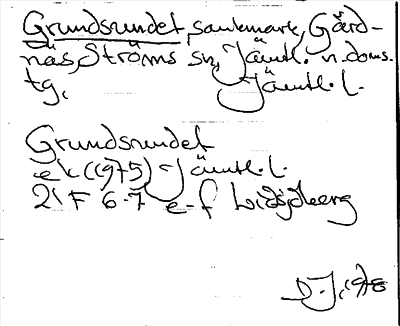 Grundsundet, sankmark, Gärd-
näs, Ströms sn, Jämtl. n. doms.
tg, Jämtl. l.
Grundsundet
ek (1975) Jämtl. l.
21 F 6-7 e-f Lidsjöberg
D. J. 1978